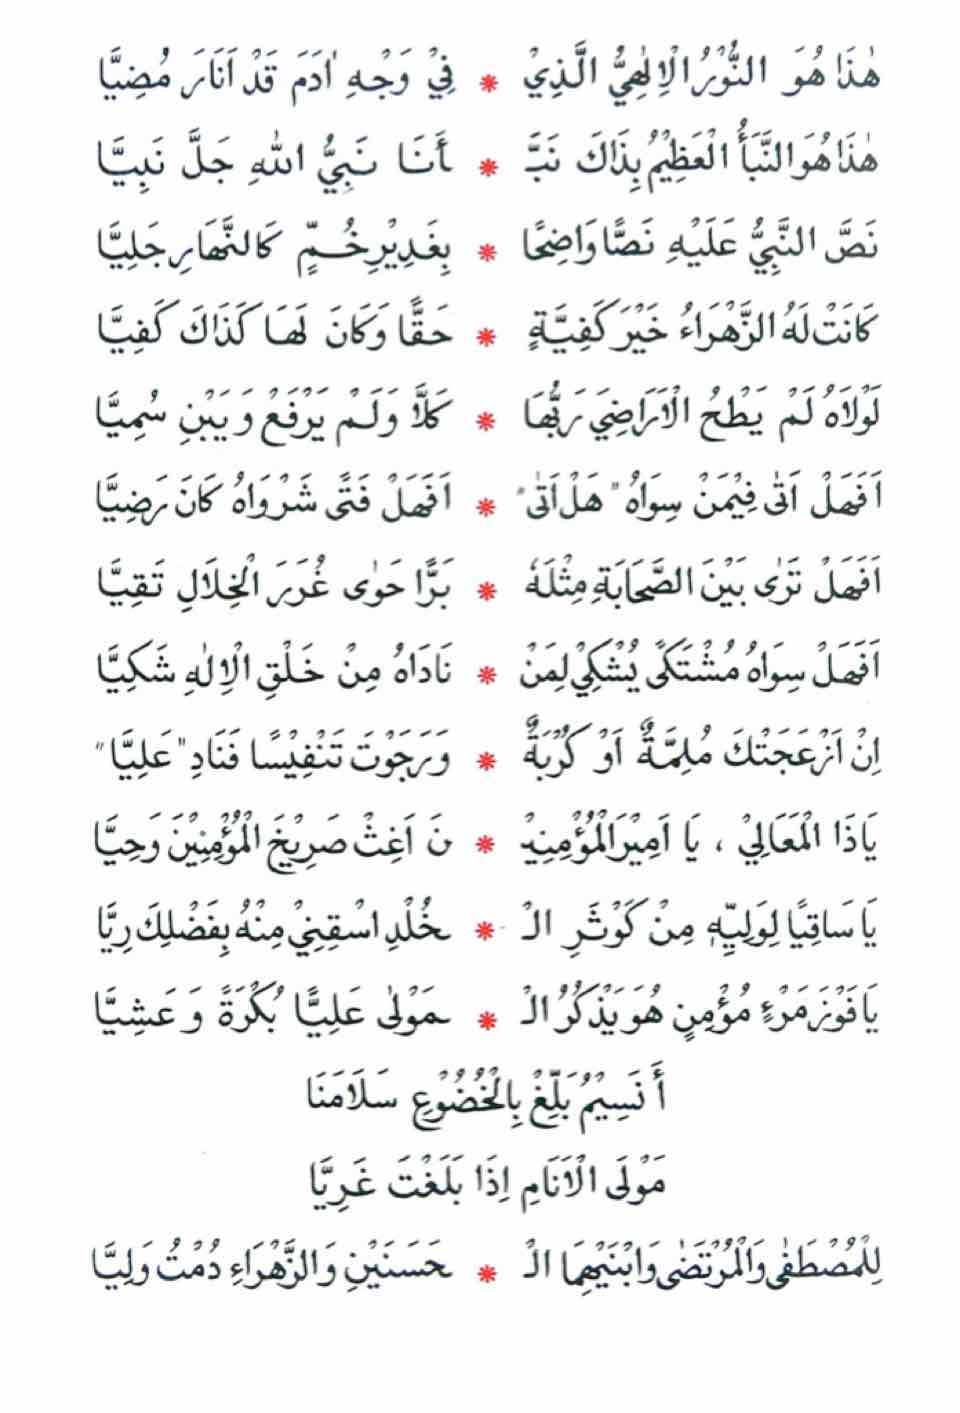 هٰذَا هُوَ النُّوْرُ الْاِلٰهِيُّ الَّذِيْ * فِيْ وَجْهِ اٰدَمَ قَدْ اَنَارَ مُضِيَّا
هٰذَا هُوَ النَّبَأُ الْعَظِيْمُ بِذَاكَ نَبَّـ * ـأَنَا نَبِيُّ اللهِ جَلَّ نَبِيَّا
نَصَّ النَّبِيُّ عَلَيْهِ نَصًّا وَاضِحًا * بِغَدِيْرِ خُمٍّ كَالنَّهَارِ جَلِيَّا
كَانَتْ لَهُ الزَّهْرَاءُ خَيْرَ كَفِيَّةٍ * حَقًّا وَكَانَ لَهَا كَذَاكَ كَفِيَّا
لَوْلَاهُ لَمْ يَطْحُ الْاَرَاضِيَ رَبُّهَا * كَلَّا وَلَمْ يَرْفَعْ وَيَبْنِ سُمِيَّا
اَفَهَلْ اَتٰى فِيْمَنْ سِوَاهُ "هَلْ اَتٰى" * اَفَهَلْ فَتًى شَرْوَاهُ كَانَ رَضِيَّا
اَفَهَلْ تَرٰى بَيْنَ الصَّحَابَةِ مِثْلَهٗ * بَرًّا حَوٰى غُرَرَ الْخِلَالِ تَقِيَّا
اَفَهَلْ سِوَاهُ مُشْتَكًى يُشْكِيْ لِمَنْ * نَادَاهُ مِنْ خَلْقِ الْاِلٰهِ شَكِيَّا
اِنْ اَزْعَجَتْكَ مُلِمَّةٌ اَوْ كُرْبَةٌ * وَرَجَوْتَ تَنْفِيْسًا فَنَادِ "عَلِيَّا"
يَاذَا الْمَعَالِيْ ، يَا اَمِيْرَ الْمُؤْمِنِيْـ * نَ اَغِثْ صَرِيْخَ الْمُؤْمِنِيْنَ وَحِيَّا
يَا سَاقِيًا لِوَلِيِّهٖ مِنْ كَوْثَرِ الْـ * ـخُلْدِ اسْقِنِيْ مِنْهُ بِفَضْلِكَ رِيَّا
يَا فَوْزَ مَرْءٍ مُؤْمِنٍ هُوَ يَذْكُرُ الْـ * ـمَوْلٰى عَلِيًّا بُكْرَةً وَ عَشِيَّا
أَ نَسِيْمُ بَلِّغْ بِالْخُضُوْعِ سَلَامَنَا
مَوْلَى الْاَنَامِ اِذَا بَلَغْتَ غَرِيَّا
لِلْمُصْطَفٰى وَالْمُرْتَضٰى وَابْنَيْهِمَا الْـ * ـحَسَنَيْنِ وَالزَّهْرَاءِ دُمْتُ وَلِيَّا